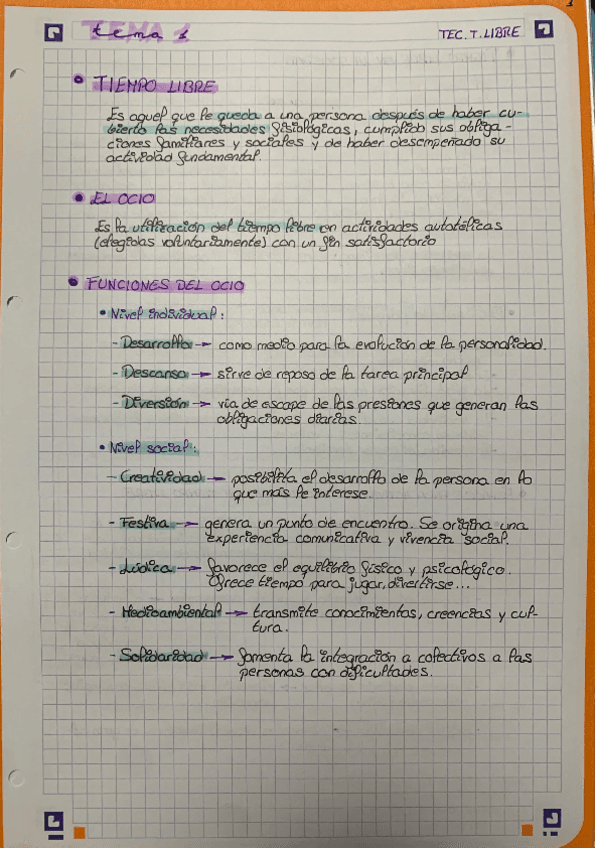 TEMA 1
tema 1
TEC. T. LIBRE
1
• TIEMPO LIBRE
Es aquel que le queda a una persona después de haber cu-
bierto las necesidades fisiológicas, cumplido sus obliga-
ciones familiares y sociales y de haber desempeñado su
actividad fundamental.
• EL OCIO
Es la utilización del tiempo libre en actividades autotélicas
(elegidas voluntariamente) con un fin satisfactorio
• FUNCIONES DEL OCIO
• Nivel individual:
- Desarrollo → como medio para la evolución de la personalidad.
- Descanso → sirve de reposo de la tarea principal
- Diversión → vía de escape de las presiones que generan las
obligaciones diarias.
• Nivel social:
- Creatividad → posibilita el desarrollo de la persona en lo
que más le interese.
- Festiva → genera un punto de encuentro. Se origina una
experiencia comunicativa y vivencia social.
- Lúdica → favorece el equilibrio físico y psicológico.
Ofrece tiempo para jugar, divertirse...
- Medioambiental → transmite conocimientos, creencias y cul-
tura.
- Solidaridad → fomenta la integración a colectivos a las
personas con dificultades.